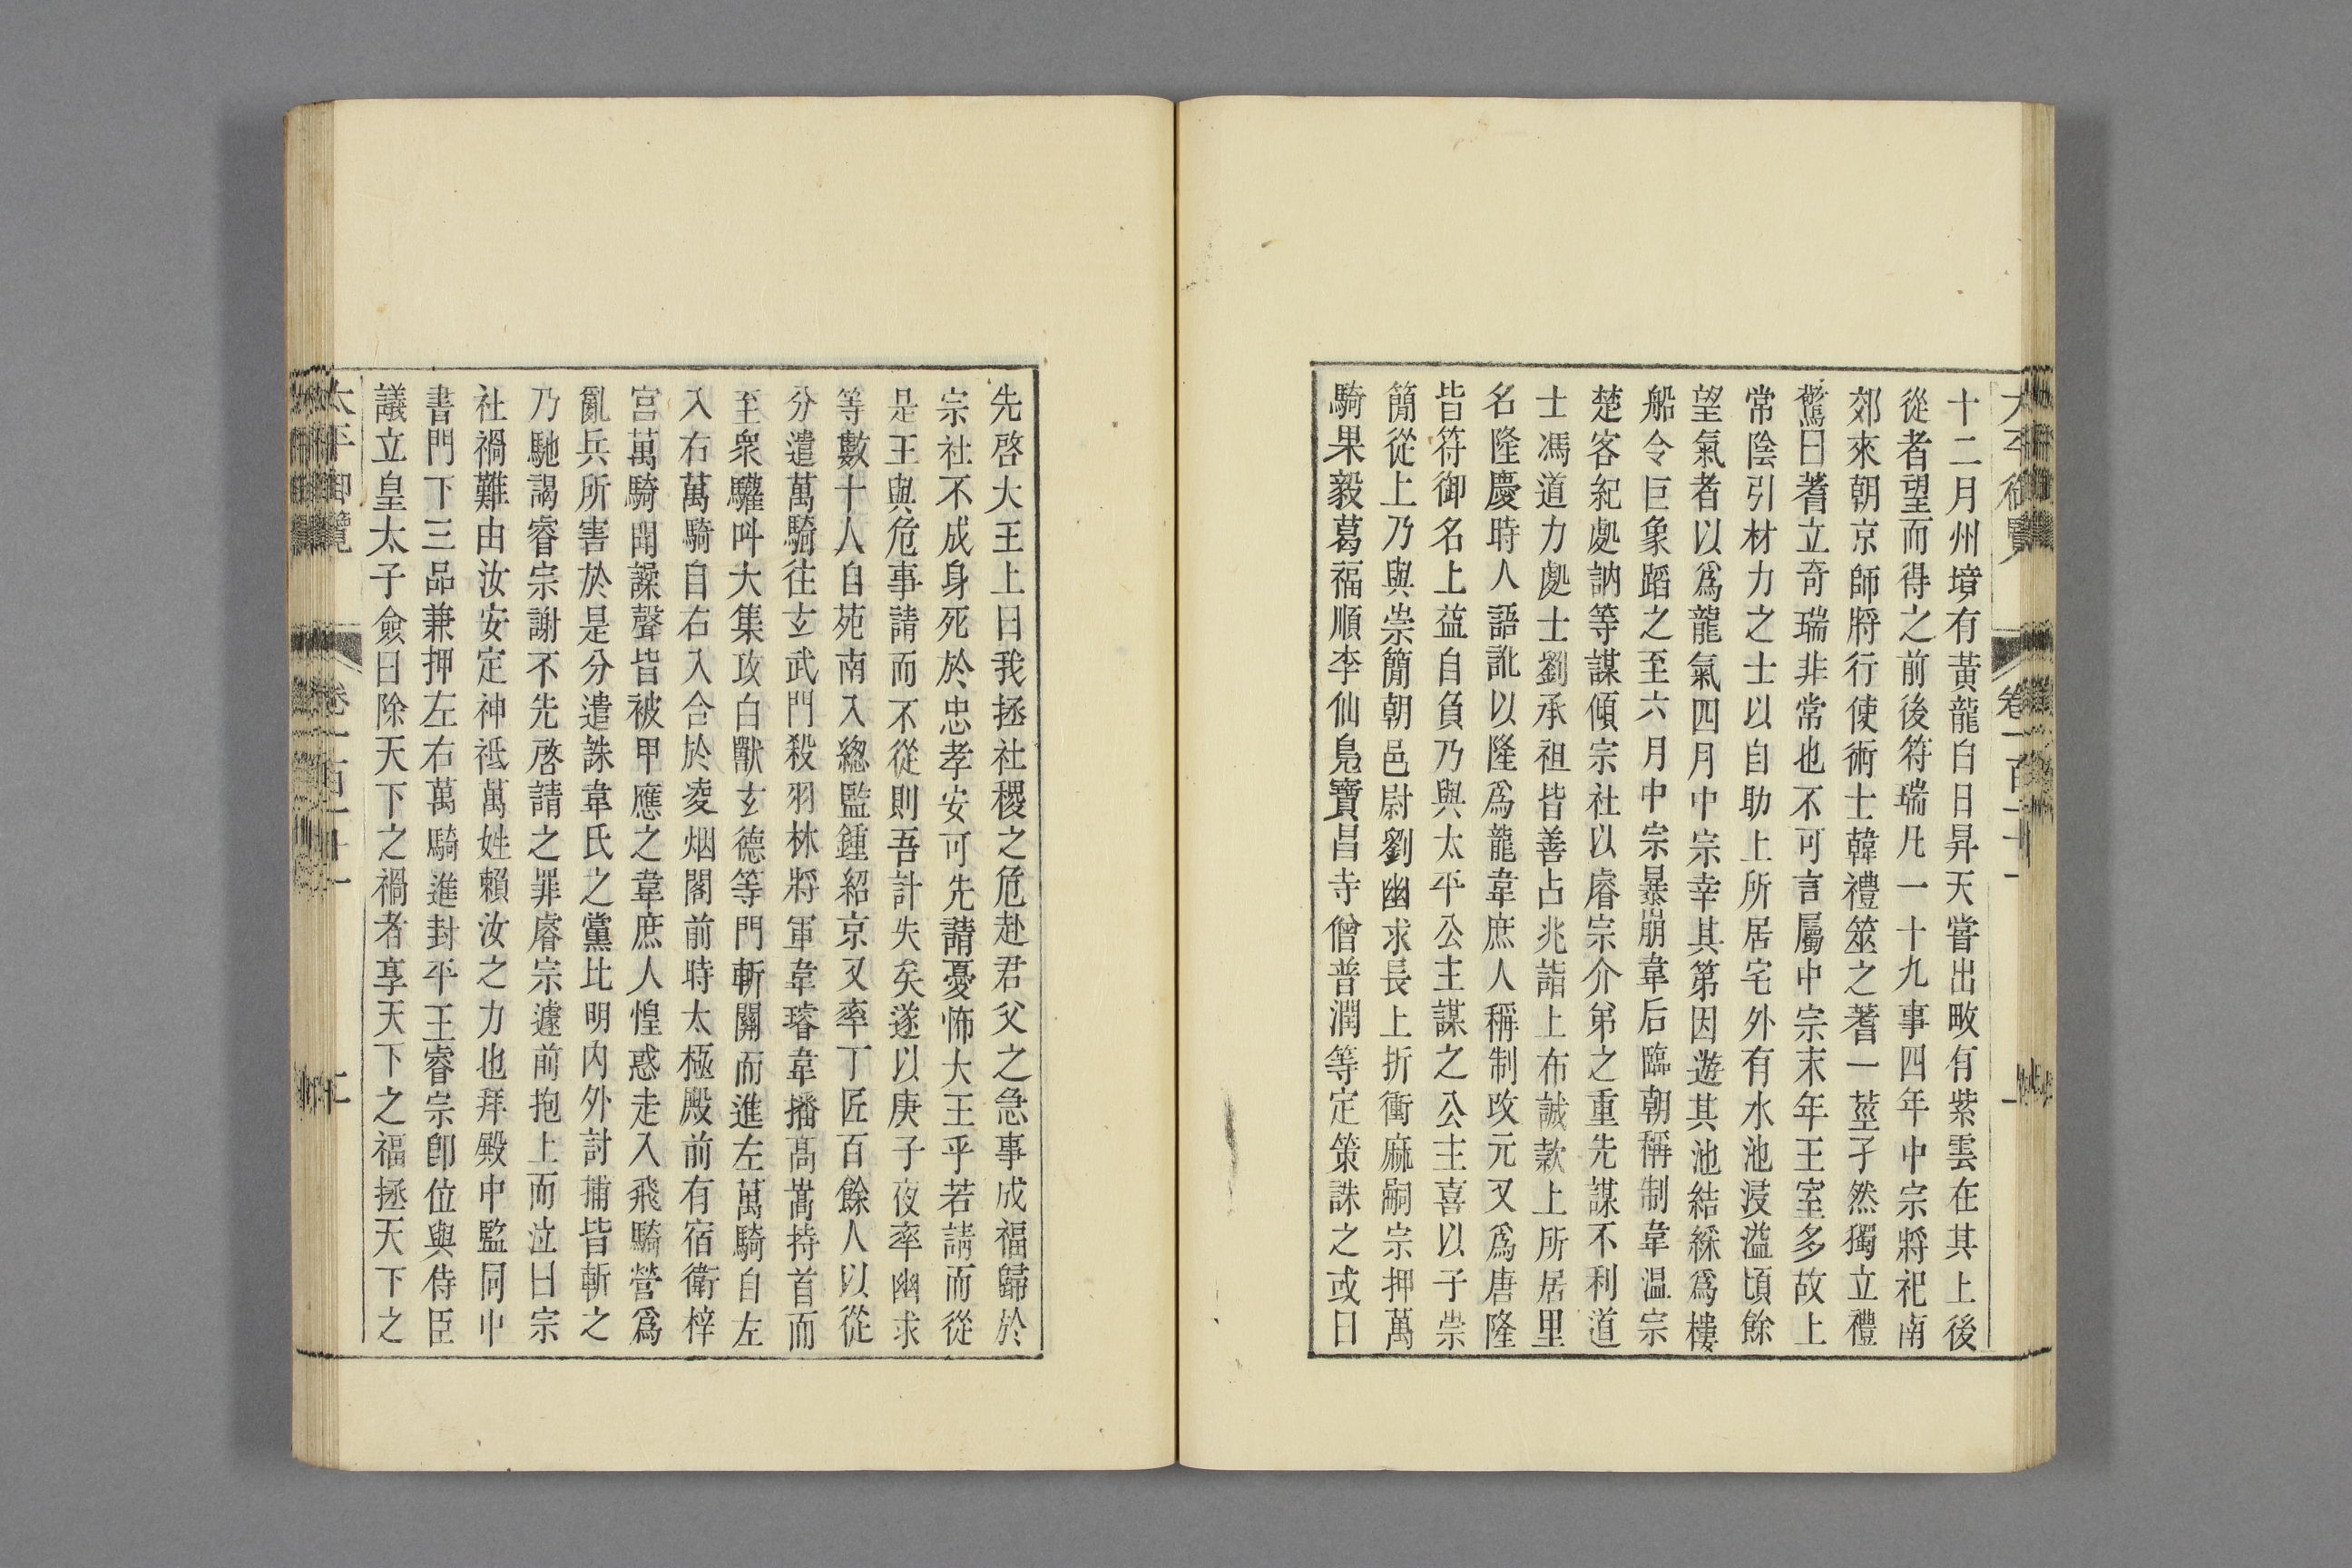 十二月州境有黃龍白日昇天嘗出畋有紫雲在其上後
從者望而得之前後符瑞凡一十九事四年中宗將祀南
郊來朝京師將行使術士韓禮筮之蓍一莖孑然獨立禮
驚曰蓍立奇瑞非常也不可言屬中宗末年王室多故上
常陰引材力之士以自助上所居宅外有水池浸溢頃餘
望氣者以爲龍氣四月中宗幸其第因遊其池結綵爲樓
船令巨象蹈之至六月中宗暴崩韋后臨朝稱制韋温宗
楚客紀處訥等謀傾宗社以睿宗介弟之重先謀不利道
士馮道力處士劉承祖皆善占兆詣上布誠款上所居里
名隆慶時人語訛以隆爲龍韋庶人稱制改元又爲唐隆
皆符御名上益自負乃與太平公主謀之公主喜以子崇
簡從上乃與崇簡朝邑尉劉幽求長上折衝麻嗣宗押萬
騎果毅葛福順李仙鳧寶昌寺僧普潤等定策誅之或曰
先啓大王上曰我拯社稷之危赴君父之急事成福歸於
宗社不成身死於忠孝安可先請憂怖大王乎若請而從
是王與危事請而不從則吾計失矣遂以庚子夜率幽求
等數十人自苑南入總監鍾紹京又率丁匠百餘人以從
分遣萬騎往玄武門殺羽林將軍韋璿韋播高嵩持首而
至衆驩叫大集攻白獸玄德等門斬關而進左萬騎自左
入右萬騎自右入合於凌烟閣前時太極殿前有宿衛梓
宮萬騎聞譟聲皆被甲應之韋庶人惶惑走入飛騎營爲
亂兵所害於是分遣誅韋氏之黨比明内外討捕皆斬之
乃馳謁睿宗謝不先啓請之罪睿宗遽前抱上而泣曰宗
社禍難由汝安定神祇萬姓賴汝之力也拜殿中監同中
書門下三品兼押左右萬騎進封平王睿宗卽位與侍臣
議立皇太子僉曰除天下之禍者享天下之福拯天下之
太平御覽